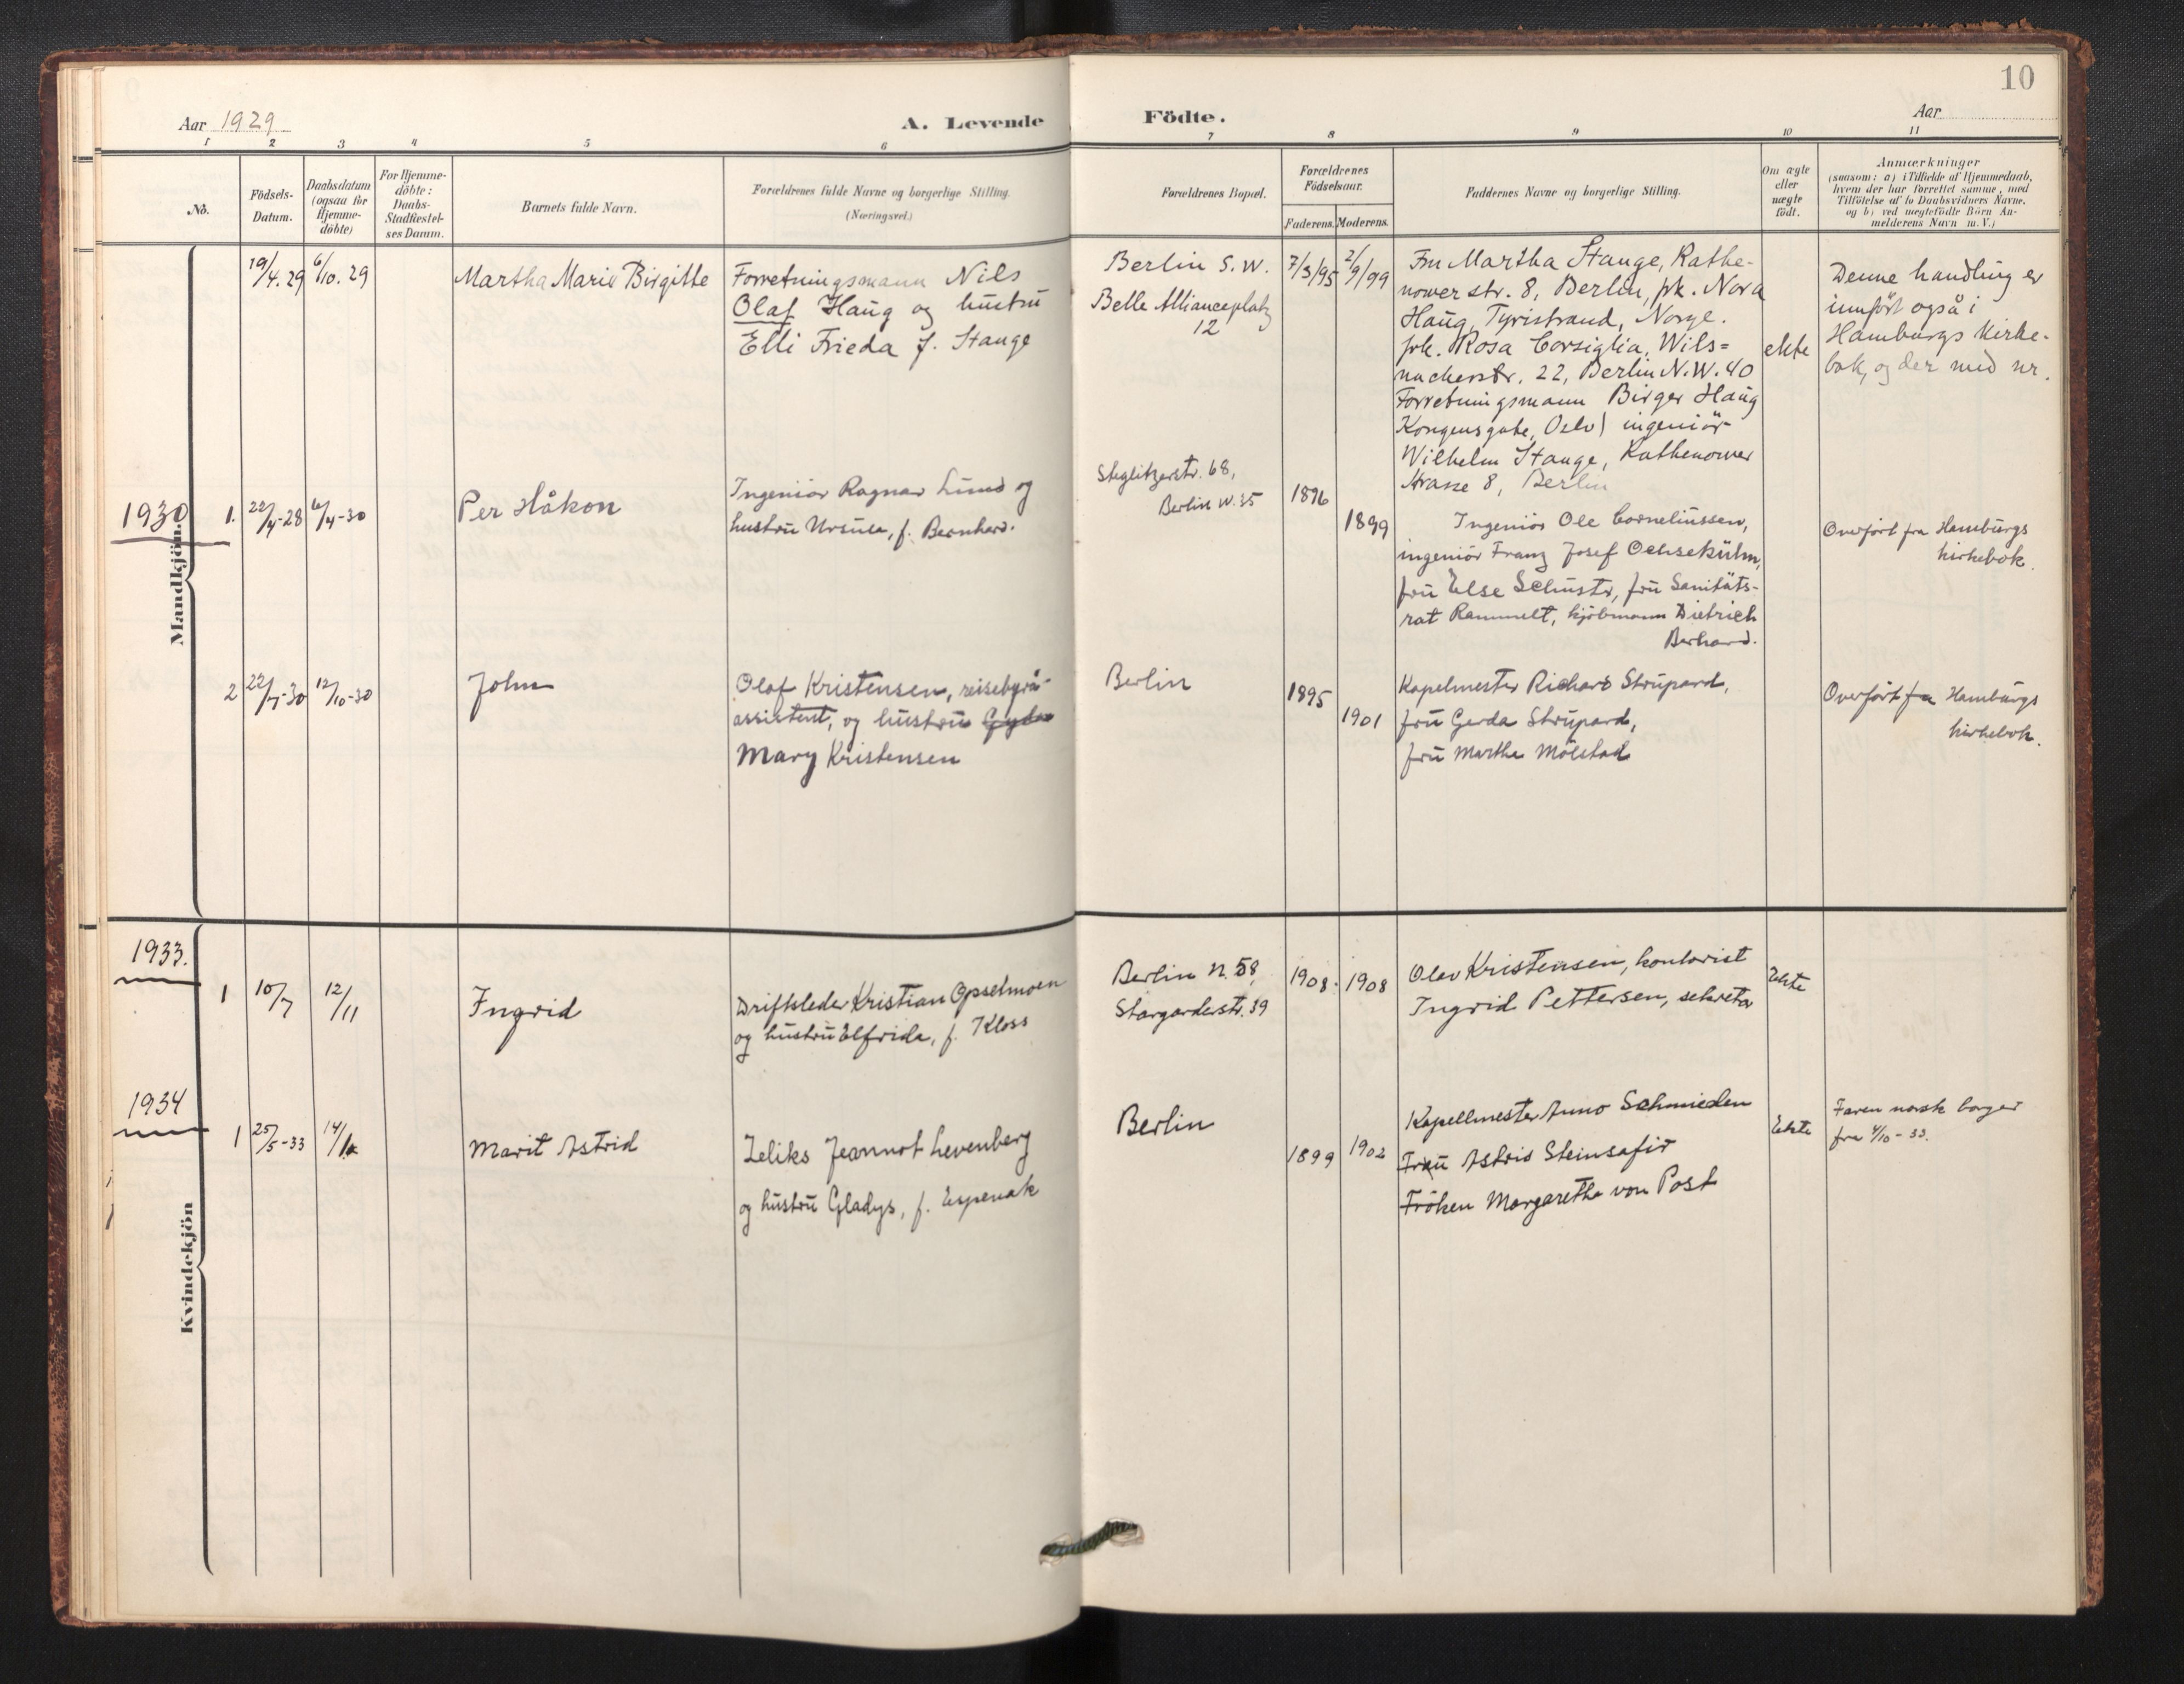 10
Aar 1929
A. Levende
Födte.
Aar
1 2 3 4 5 6 7 8 9 10 11
No.
Födsels-
Datum.
Daabsdatum
(ogsaa for
Hjemme-
döbte)
For Hjemme-
döbte:
Daabs-
Stadfæstel-
ses Datum.
Barnets fulde Navn.
Forældrenes fulde Navne og borgerlige Stilling.
(Næringsvei.)
Forældrenes Bopæl.
Forældrenes
Födselsaar.
Faderens. Moderens.
Faddernes Navne og borgerlige Stilling.
Om ægte
eller
uægte
födt.
Anmærkninger
(saasom: a) i Tilfælde af Hjemmedaab,
hvem der har forrettet samme, med
Tilföielse af to Daabsvidners Navne,
og b) ved uægtefödte Börn An-
melderens Navn m. V.)
Mandkjön.
19/4. 29 6/10. 29
Martha Marie Birgitte
Forretningsmann Nils
Olaf Haug og hustru
Elli Frieda f. Stange
Berlin S.W.
Belle Allianceplatz
12
7/3/95 2/9/99
Fru Martha Stange, Rathe-
nower str. 8, Berlin, frk. Nora
Haug, Tyristrand, Norge.
frk. Rosa Corsiglia, Wils=
nackerstr. 22, Berlin N.W. 40
Forretningsmann Birger Haug
Kongensgate, Oslo) ingeniör
Wilhelm Stange, Rathenower
Strasse 8, Berlin
ekte
Denne handling er
innfört også i
Hamburgs Kirke-
bok, og der med nr.
1930
1. 22/4-28 6/4-30
Per Håkon
Ingeniör Ragnar Lund og
hustru Ursula, f. Bernhard.
Steglitzerstr. 68,
Berlin W. 35
1896
1899
Ingeniör Ole Corneliussen,
ingeniör Franz Josef Ochsekühn,
fru Else Schuster, fru Sanitäts-
rat Rammelt, kjöbmann Dietrich
Berhard.
Overfört fra Hamburgs
kirkebok.
2 22/7-30 12/10-30
John
Olaf Kristensen, reisebyrå-
assistent, og hustru Gyda
Mary Kristensen
Berlin
1895
1901
Kapelmester Richard Strupard,
fru Gerda Strupard,
fru Martha Mölstad
Overfört fra Hamburgs
kirkebok.
Kvindekjön
1933.
1 10/7 12/11
Ingrid
Driftsleder Kristian Opselmoen
og hustru Elfrida, f. Kloss
Berlin N. 58,
Stargarderstr. 39
1908. 1908
Olav Kristensen, kontorist
Ingrid Pettersen, sekretær
Ekte
1934
1 25/5-33
Marit Astrid
Zeliks Jeannot Levenberg
og hustru Gladys, f. Espenak
Berlin
1899 1902
Kapellmester Anno Schmieden
Frau Astrid Steinsafir
Fröken Margarethe von Post
Ekte
Faren norsk borger
fra 4/10-33.